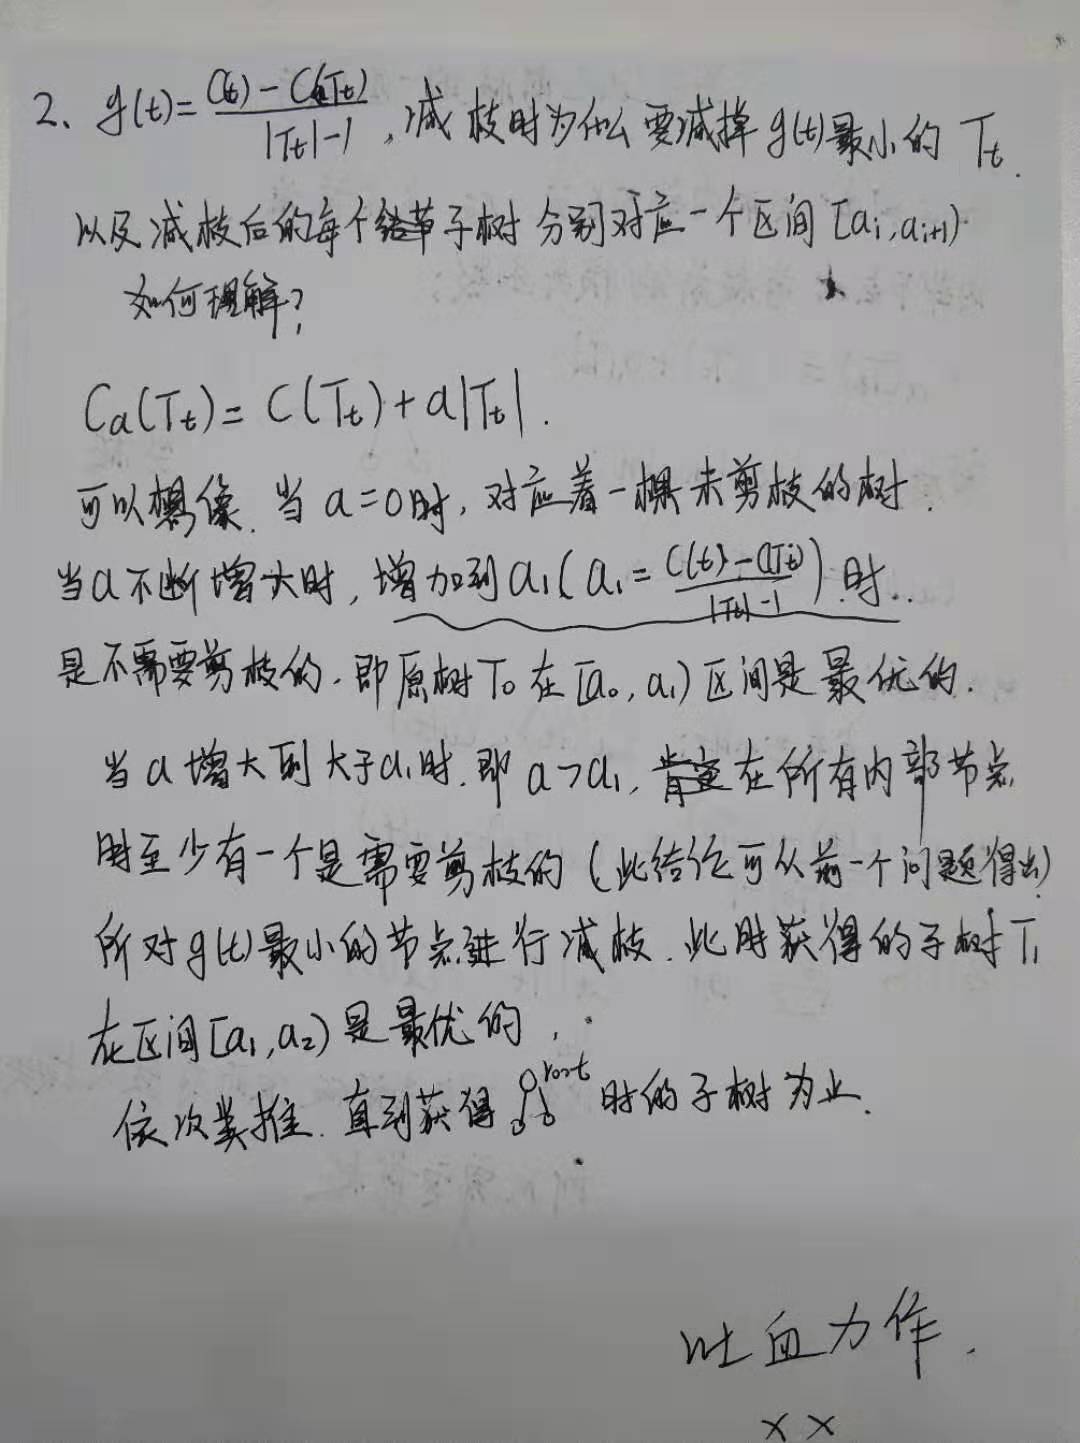 2、g(t)=\frac{C(t)-C(T_t)}{|T_t|-1},减枝时为什么要减掉g(t)最小的 T_t.
以及减枝后的每个结节子树分别对应一个区间[a_i,a_{i+1})
如何理解?
C_a(T_t)=C(T_t)+a|T_t|.
可以想像.当a=0时,对应着一棵未剪枝的树.
当a不断增大时,增加到a_1(a_1=\frac{C(t)-C(T_t)}{|T_t|-1})时..
是不需要剪枝的.即原树T_0在[a_0,a_1)区间是最优的.
当a增大到大于a_1时.即a>a_1,肯定在所有内部节点
时至少有一个是需要剪枝的(此结论可从前一个问题得出)
所对g(t)最小的节点进行减枝.此时获得的子树T_1
在区间[a_1,a_2)是最优的,
依次类推.直到获得 root 时的子树为止.
吐血力作.
××